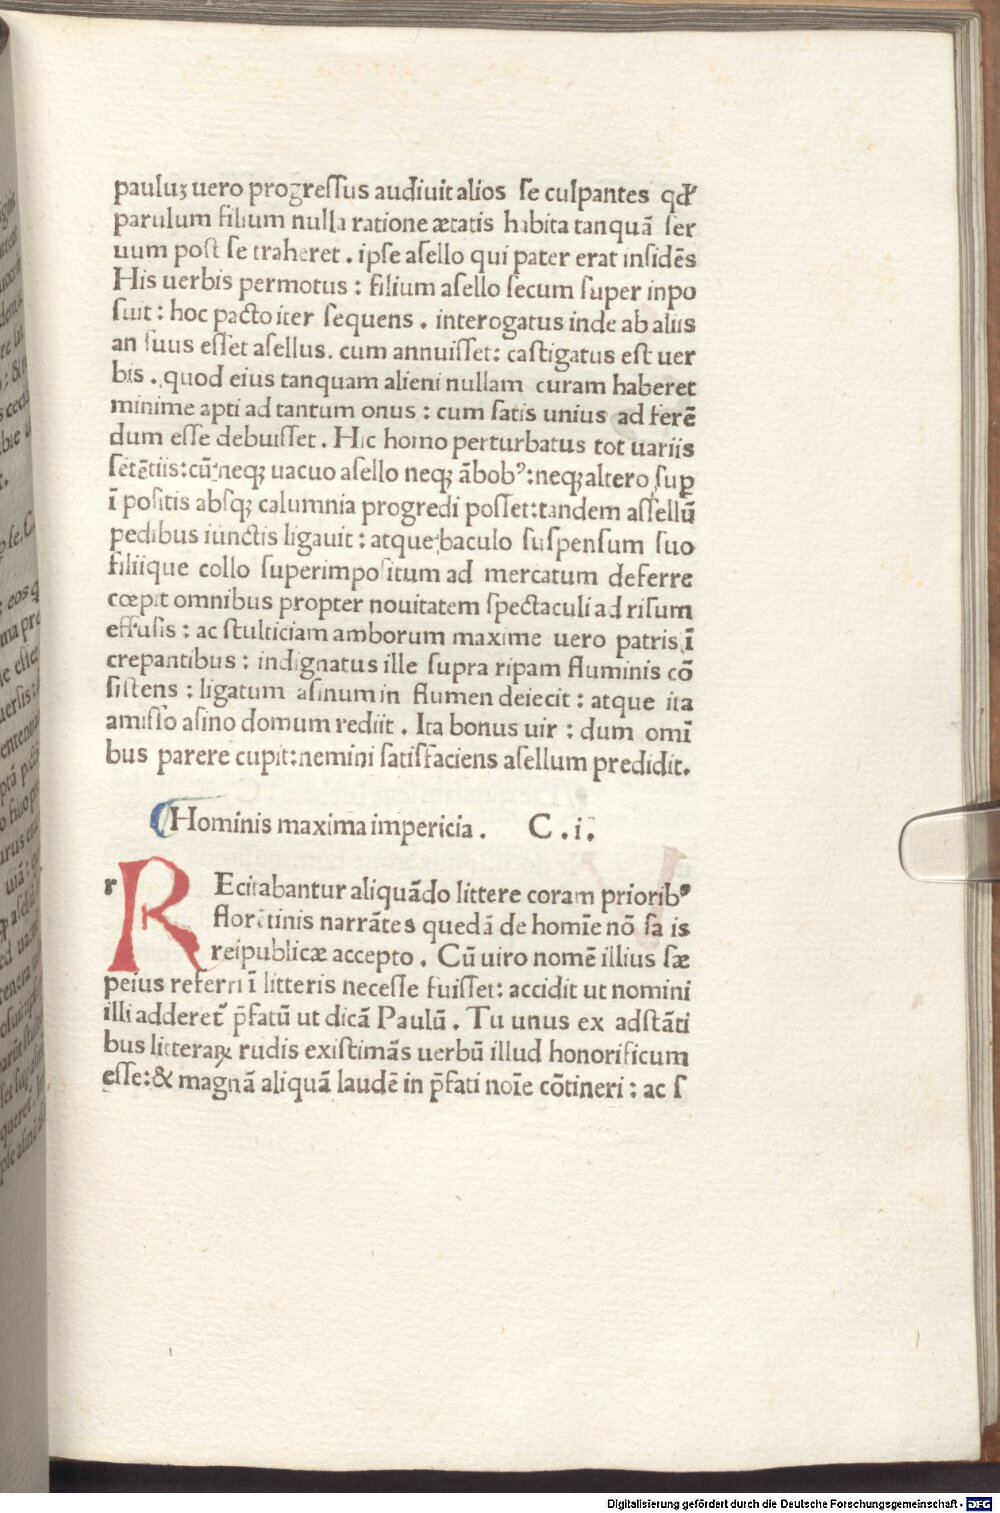 pauluꝫ uero progreſſus audiuit alios ſe culpantes qđ
parulum filium nulla ratione ætatis habita tanquā ſer
uum poſt ſe traheret . ipſe aſello qui pater erat inſidēs
His uerbis permotus : filium aſello ſecum ſuper inpo
ſuit : hoc pacto iter ſequens . interogatus inde ab aliis
an ſuus eſſet aſellus. cum annuiſſet: caſtigatus eſt uer
bis . quod eius tanquam alieni nullam curam haberet
minime apti ad tantum onus : cum ſatis unius ad ferē
dum eſſe debuiſſet . Hic homo perturbatus tot uariis
ſētētiis: cū neqꝫ uacuo aſello neqꝫ ābobꝰ: neqꝫ altero ſuꝑ
ī poſitis abſqꝫ calumnia progredi poſſet: tandem aſſellū
pedibus iunctis ligauit : atque baculo ſuſpenſum ſuo
filiique collo ſuperimpoſitum ad mercatum deferre
cœpit omnibus propter nouitatem ſpectaculi ad riſum
effuſis : ac ſtulticiam amborum maxime uero patris ī
crepantibus : indignatus ille ſupra ripam fluminis cō
ſiſtens : ligatum aſinum in flumen deiecit : atque ita
amiſſo aſino domum rediit . Ita bonus uir : dum omī
bus parere cupit: nemini ſatiſfaciens aſellum predidit.
Hominis maxima impericia . C . i.
r R Ecitabantur aliquādo littere coram prioribꝰ
florētinis narrātes quedā de homīe nō ſa is
reipublicæ accepto . Cū uiro nomē illius ſæ
peius referri ī litteris neceſſe fuiſſet: accidit ut nomini
illi adderet᷑ p̄fatū ut dicā Paulū . Tu unus ex adſtāti
bus litteraꝝ rudis exiſtimās uerbū illud honorificum
eſſe: & magnā aliquā laudē in p̄fati noīe cōtineri : ac ſ
Digitalisierung gefördert durch die Deutsche Forschungsgemeinschaft - DFG